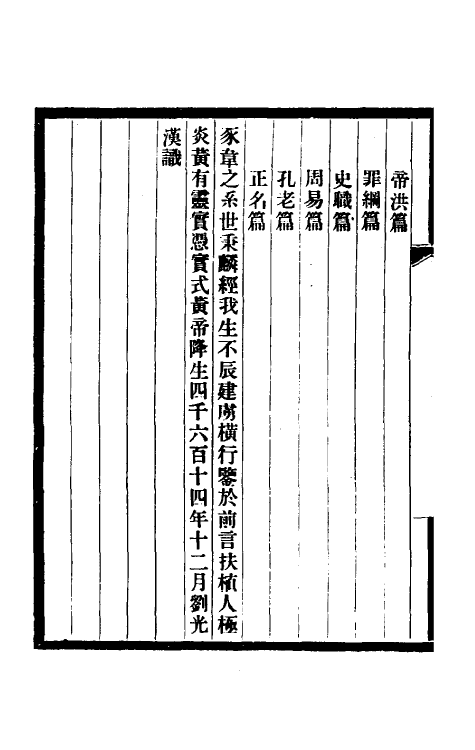 帝洪篇
罪綱篇
史職篇
周易篇
孔老篇
正名篇
豕韋之系世秉麟經我生不辰建虏橫行鑒於前言扶植人極
炎黃有靈實憑實式黃帝降生四千六百十四年十二月劉光
漢識